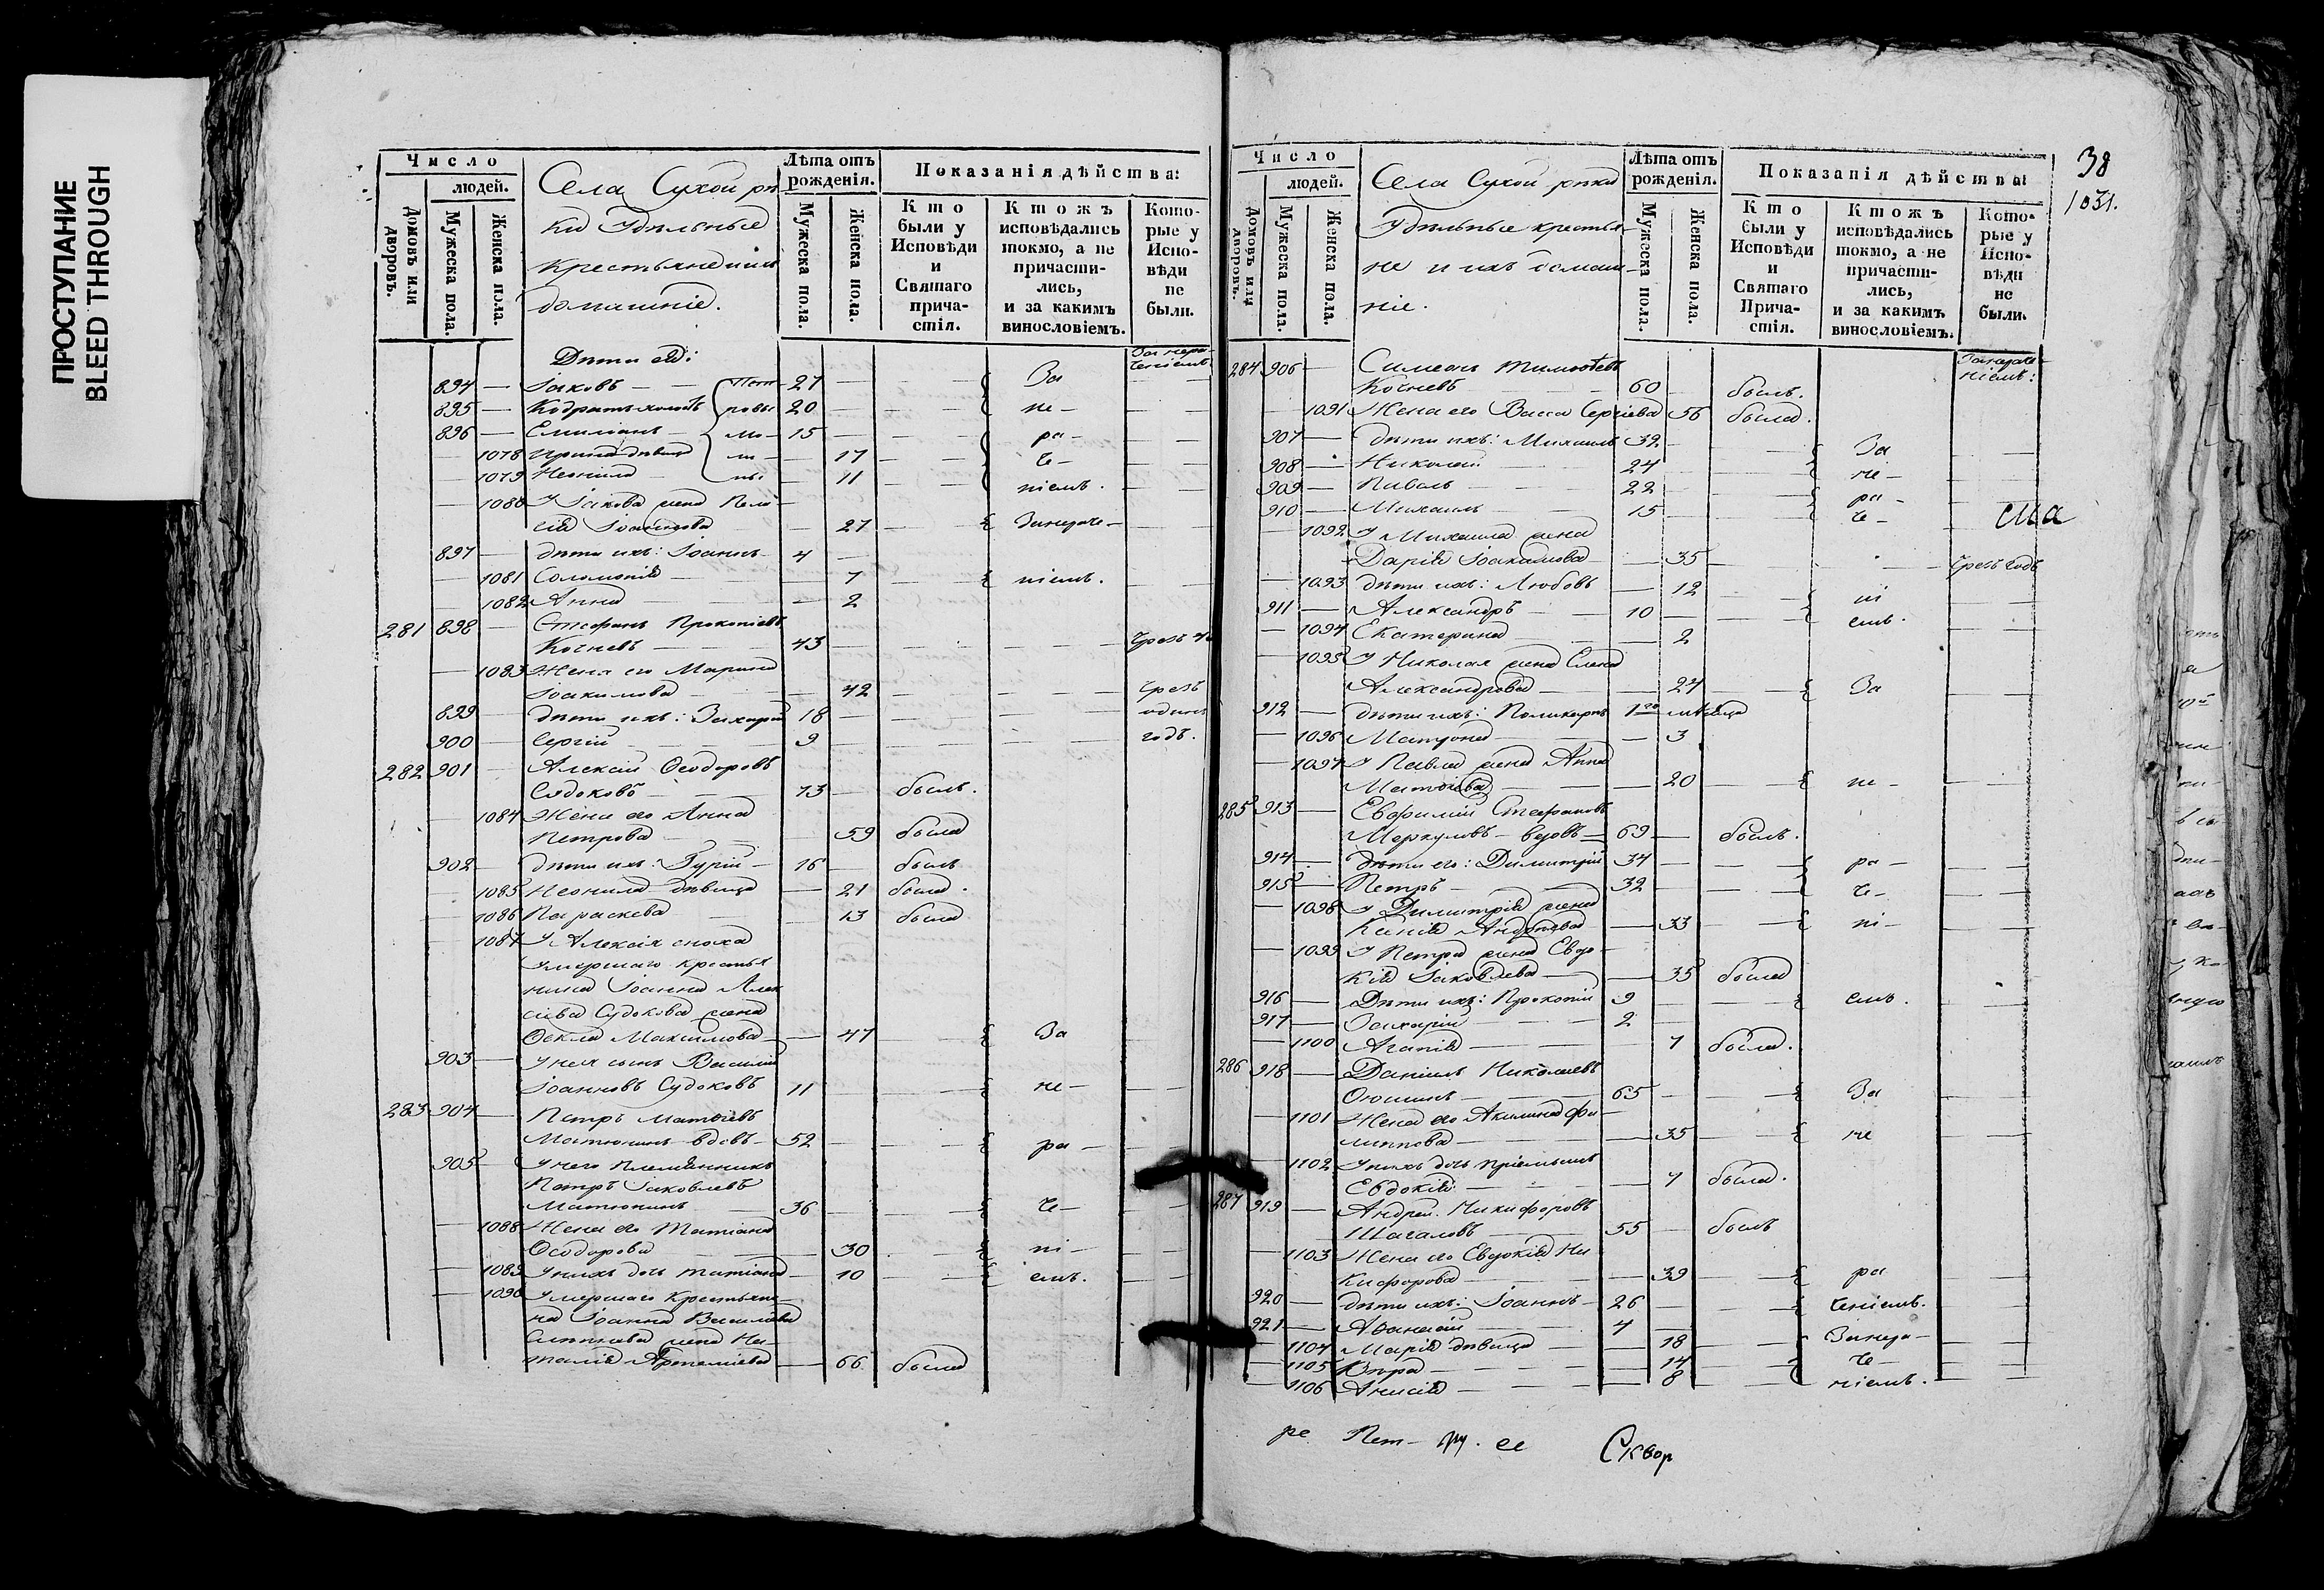 ПРОСТУПАНИЕ
BLEED THROUGH
Число
людей.
Домовъ или дворовъ.
Мужеска пола.
Женска пола.
Села Сухой рѣ
ки Удѣльные
крестьяне и ихъ
домашніе.
Лѣта отъ рожденія.
Мужеска пола.
Женска пола.
Показанія дѣйства:
Кто были у Исповѣди и Святаго причастія.
Ктожъ исповѣдались токмо, а не причастились, и за какимъ винословіемъ.
Которые у Исповѣди не были.
Дѣти ея:
894 — Іаковъ — 27 — За
895 — холостъ 20 — не —
896 — Емиліанъ — 15 — ра —
— 1078 Ирина дѣвица — 17 — че —
— 1079 Неонила — 11 — ніемъ.
— 1080 У Іакова жена Пела
гія — 27 — Занераче —
897 — дѣти ихъ: Іоаннъ — 4 —
— 1081 Соломонія — 7 — ніемъ.
— 1082 Анна — 2
281 898 — Стефанъ Прокопіевъ
Кочневъ — 43 —
— 1083 Жена его Марина
Іоакимова — 42 — чрезъ
899 — дѣти ихъ: Захарій 18 — одинъ
900 — Сергій — 9 — годъ.
282 901 — Алексій Ѳеодоровъ
Судоковъ — 73 — былъ.
— 1084 Жена его Анна
Петрова — 59 была
902 — дѣти ихъ: Гурій — 16 — былъ
— 1085 Неонила дѣвица — 21 была.
— 1086 Параскева — 13 была
— 1087 У Алексія сноха
Умершаго крестья
нина Іоанна Алек
сіева Судокова жена
Ѳекла Максимова — 47 — За
903 — У нея сынъ Василій
Іоанновъ Судоковъ 11 — не —
283 904 — Петръ Матѳіевъ
Матюнинъ вдовъ — 52 — ра —
905 — У него племянникъ
Петръ Іаковлевъ
Матюнинъ — 36 — че —
— 1088 Жена его Татіана
Ѳеодорова — 30 — ні —
— 1089 У нихъ дочь Татіана — 10 — емъ.
— 1090 Умершаго Крестьяни
на Іоанна Васильева
жена На
талія Артеміева — 66 была
Число
людей.
Домовъ или дворовъ.
Мужеска пола.
Женска пола.
Села Сухой рѣки
Удѣльные крестья
не и ихъ домаш
ніе.
Лѣта отъ рожденія.
Мужеска пола.
Женска пола.
Показанія дѣйства:
Кто были у Исповѣди и Святаго Причастія.
Ктожъ исповѣдались токмо, а не причастились, и за какимъ винословіемъ.
Которые у Исповѣди не были.
38
1031.
284 906 — Симеонъ Тимоѳеевъ
Кочневъ — 60 — былъ.
— 1091 Жена его Васса Сергіева 56 была.
907 — дѣти ихъ: Михаилъ 39 — За
908 — Николай — 24 — не —
909 — Павелъ — 22 — ра —
910 — Михаилъ — 15 — че —
— 1092 У Михаила жена
Дарія Іоакимова — 35 — Чрезъ годъ
— 1093 дѣти ихъ: Любовь — 12 — ні
911 — Александръ — 10 — емъ.
— 1094 Екатерина — 2
— 1095 У Николая жена Елена
Александрова — 24 — За
912 — дѣти ихъ: Поликарпъ 1го мѣсяца
— 1096 Матрона — 3
— 1097 У Павла жена Анна
Матѳіева — 20 — не —
285 913 — Евфимій Стефановъ
Меркуловъ вдовъ — 69 — былъ.
914 — Дѣти его: Димитрій 34 — ра —
915 — Петръ — 32 — че —
— 1098 У Димитрія жена
Ксенія Андреева — 33 — ні —
— 1099 У Петра жена Евдо
кія Іаковлева — 35 была
916 — Дѣти ихъ: Прокопій 9 — емъ.
917 — Захарій — 2
— 1100 Агапія — 7 была.
286 918 — Даніилъ Николаевъ
65 — За
— 1101 Жена его Акилина Фи
липпова — 35 — не
— 1102 У нихъ дочь пріемышъ
Евдокія — 7 была.
287 919 — Андрей Никифоровъ
Шагаловъ — 55 — былъ
— 1103 Жена его Евдокія Ни
кифорова — 39 — ра
920 — дѣти ихъ: Іоаннъ — 26 — ченіемъ.
921 — Аѳанасій — 4
— 1104 Марія дѣвица — 18 — Занера —
— 1105 Вѣра — 14 — че —
— 1106 Анисія — 8 — ніемъ.
Сквор